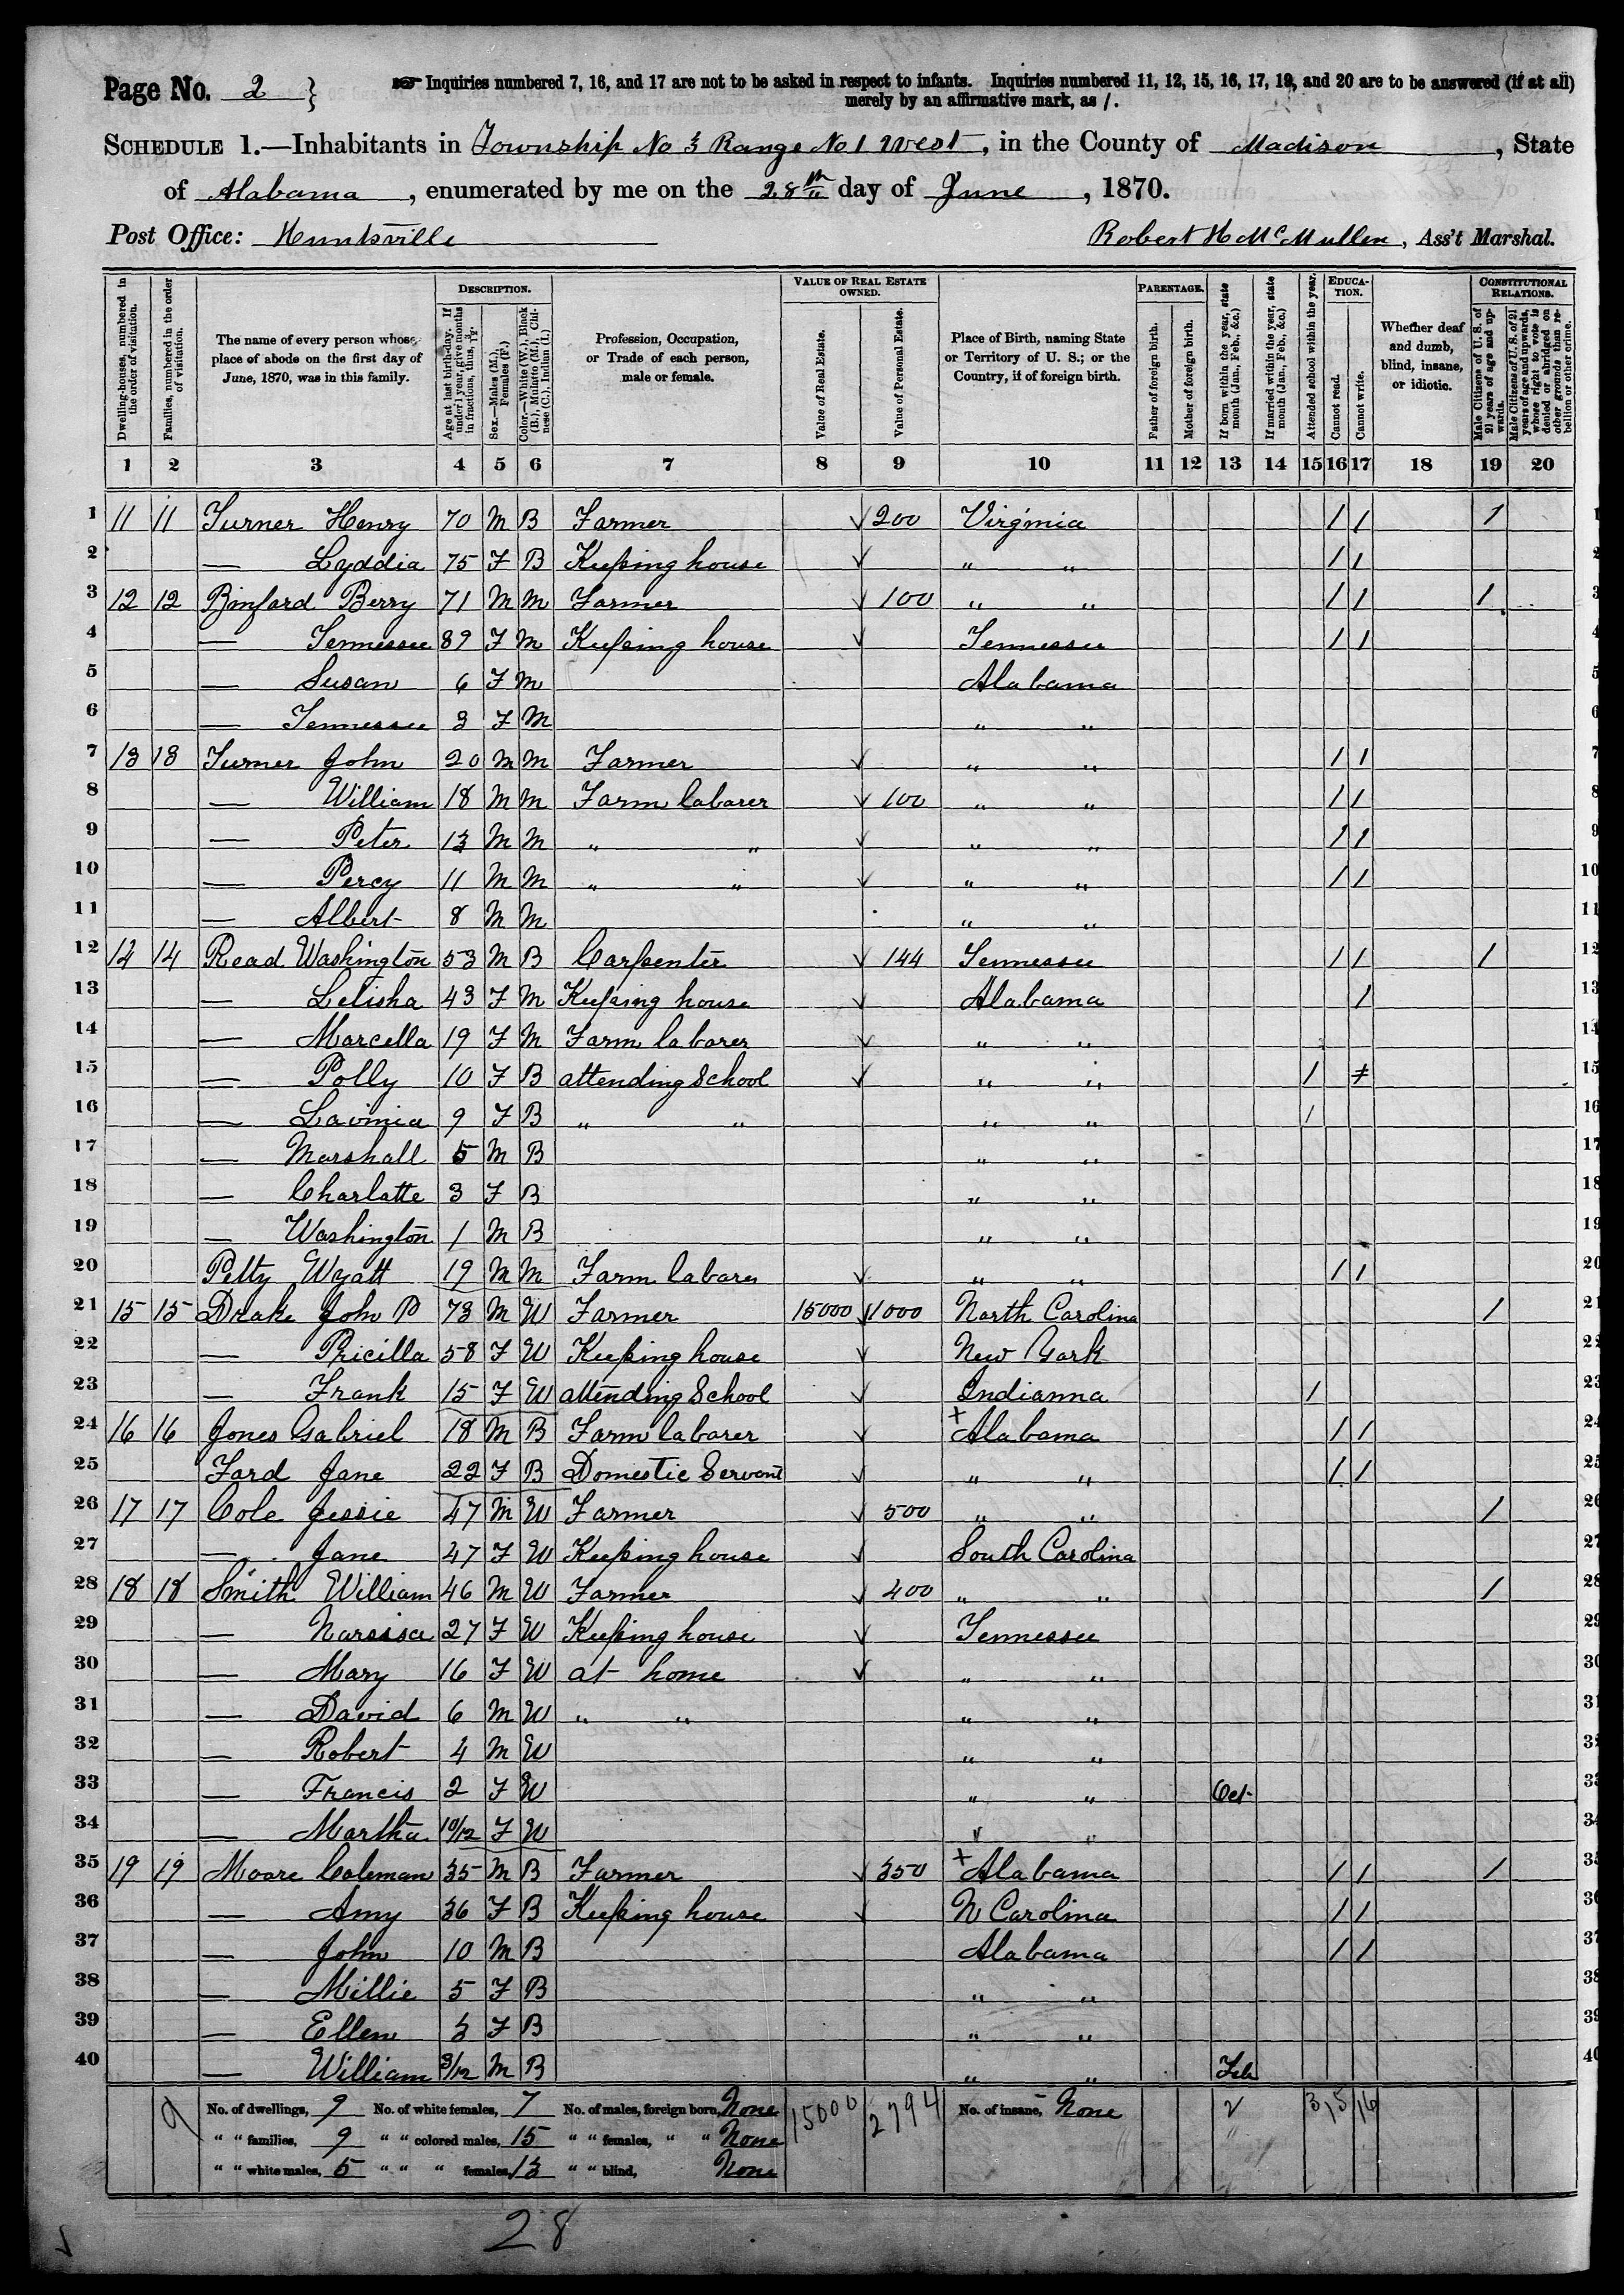 Page No. 2 }
Inquiries numbered 7, 16, and 17 are not to be asked in respect to infants. Inquiries numbered 11, 12, 15, 16, 17, 19, and 20 are to be answered (if at all)
merely by an affirmative mark, as /.
SCHEDULE 1.—Inhabitants in Township No 3 Range No 1 West, in the County of Madison, State
of Alabama, enumerated by me on the 28th day of June, 1870.
Post Office: Huntsville Robert H McMullen, Ass't Marshal.
Dwelling-houses, numbered in the order of visitation.
Families, numbered in the order of visitation.
The name of every person whose place of abode on the first day of June, 1870, was in this family.
DESCRIPTION.
Age at last birth-day. If under 1 year, give months in fractions, thus, 3/12
Sex.—Males (M.), Females (F.)
Color.—White (W.), Black (B.), Mulatto (M.), Chinese (C.), Indian (I.)
Profession, Occupation, or Trade of each person, male or female.
VALUE OF REAL ESTATE OWNED.
Value of Real Estate.
Value of Personal Estate.
Place of Birth, naming State or Territory of U. S.; or the Country, if of foreign birth.
PARENTAGE.
Father of foreign birth.
Mother of foreign birth.
If born within the year, state month (Jan., Feb., &c.)
If married within the year, state month (Jan., Feb., &c.)
Attended school within the year.
EDUCATION.
Cannot read.
Cannot write.
Whether deaf and dumb, blind, insane, or idiotic.
CONSTITUTIONAL RELATIONS.
Male Citizens of U. S. of 21 years of age and upwards.
Male Citizens of U. S. of 21 years of age and upwards, whose right to vote is denied or abridged on other grounds than rebellion or other crime.
1 2 3 4 5 6 7 8 9 10 11 12 13 14 15 16 17 18 19 20
1 11 11 Turner Henry 70 M B Farmer √ 200 Virginia / / / 1
2 — Lyddia 75 F B Keeping house √ " " / / 2
3 12 12 Binford Berry 71 M M Farmer √ 100 " " / / / 3
4 — Tennessee 89 F M Keeping house √ Tennessee / / 4
5 — Susan 6 F M Alabama 5
6 — Tennessee 3 F M " " 6
7 13 13 Turner John 20 M M Farmer √ " " / / 7
8 — William 18 M M Farm laborer √ 100 " " / / 8
9 — Peter 13 M M " " √ " " / / 9
10 — Percy 11 M M " " √ " " / / 10
11 — Albert 8 M M " " 11
12 14 14 Read Washington 53 M B Carpenter √ 144 Tennessee / / / 12
13 — Lelisha 43 F M Keeping house √ Alabama / 13
14 — Marcella 19 F M Farm laborer √ " " 14
15 — Polly 10 F B attending School √ " " / ≠ 15
16 — Lavinia 9 F B " " " " / 16
17 — Marshall 5 M B " " 17
18 — Charlotte 3 F B " " 18
19 — Washington 1 M B " " 19
20 Petty Wyatt 19 M M Farm laborer √ " " / / 20
21 15 15 Drake John P 73 M W Farmer 15000 √ 1000 North Carolina / 21
22 — Pricilla 58 F W Keeping house √ New York 22
23 — Frank 15 F W attending School √ Indianna / 23
24 16 16 Jones Gabriel 18 M B Farm laborer √ + Alabama / / 24
25 Ford Jane 22 F B Domestic Servant √ " " / / 25
26 17 17 Cole Jessie 47 M W Farmer √ 500 " " / 26
27 — Jane 47 F W Keeping house √ South Carolina 27
28 18 18 Smith William 46 M W Farmer √ 400 " " / 28
29 — Narsisa 27 F W Keeping house √ Tennessee 29
30 — Mary 16 F W at home √ " " 30
31 — David 6 M W " " " " 31
32 — Robert 4 M W " " 32
33 — Francis 2 F W " " Oct 33
34 — Martha 10/12 F W " " 34
35 19 19 Moore Coleman 35 M B Farmer √ 350 + Alabama / / / 35
36 — Amy 36 F B Keeping house √ N Carolina / / 36
37 — John 10 M B Alabama / / 37
38 — Millie 5 F B " " 38
39 — Ellen 3 F B " " 39
40 — William 3/12 M B " " Feb 40
9 No. of dwellings, 9 No. of white females, 7 No. of males, foreign born, None 15000 2794 No. of insane, None 2 3 15 16
" " families, 9 " " colored males, 15 " " females, " " None
" " white males, 5 " " " females, 13 " " blind, None
28